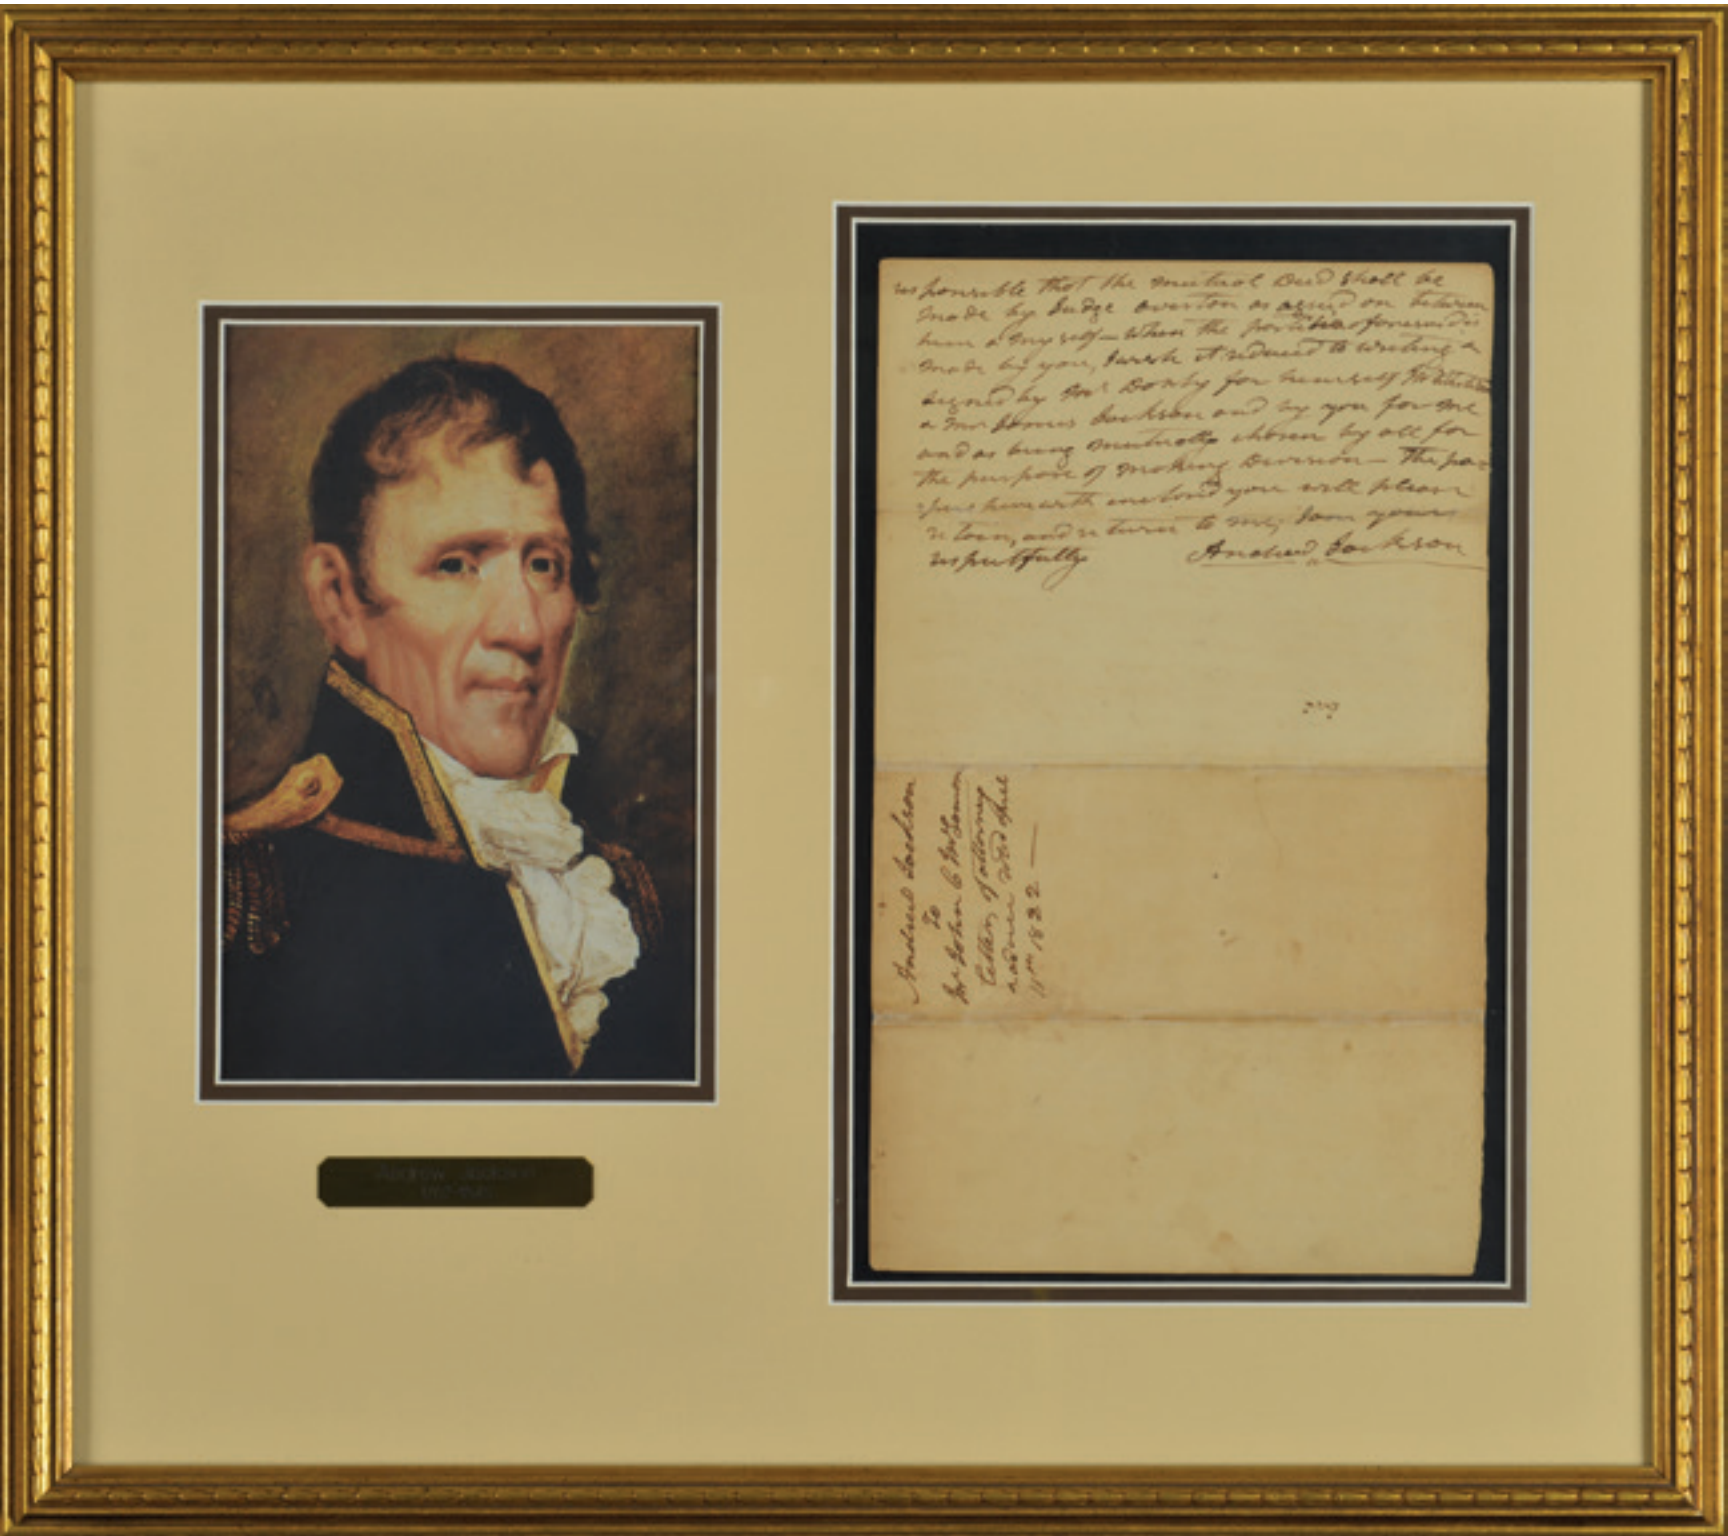 responsible that the mutual Deed shall be
made by Judge overton as agreed on between
him & myself— When the partition aforesaid is
made by you, I wish it reduced to writing &
signed by Mr Donly for himself
& Mr James Jackson and by you for me
and as being mutually chosen by all for
the purpose of making Division— The pa-
pers herewith inclosed you will please
retain, and return to me, I am yours
respectfully Andrew Jackson
Andrew Jackson
To
Mr John C McLemore
Letter of attorney
11th 1822 —
Andrew Jackson